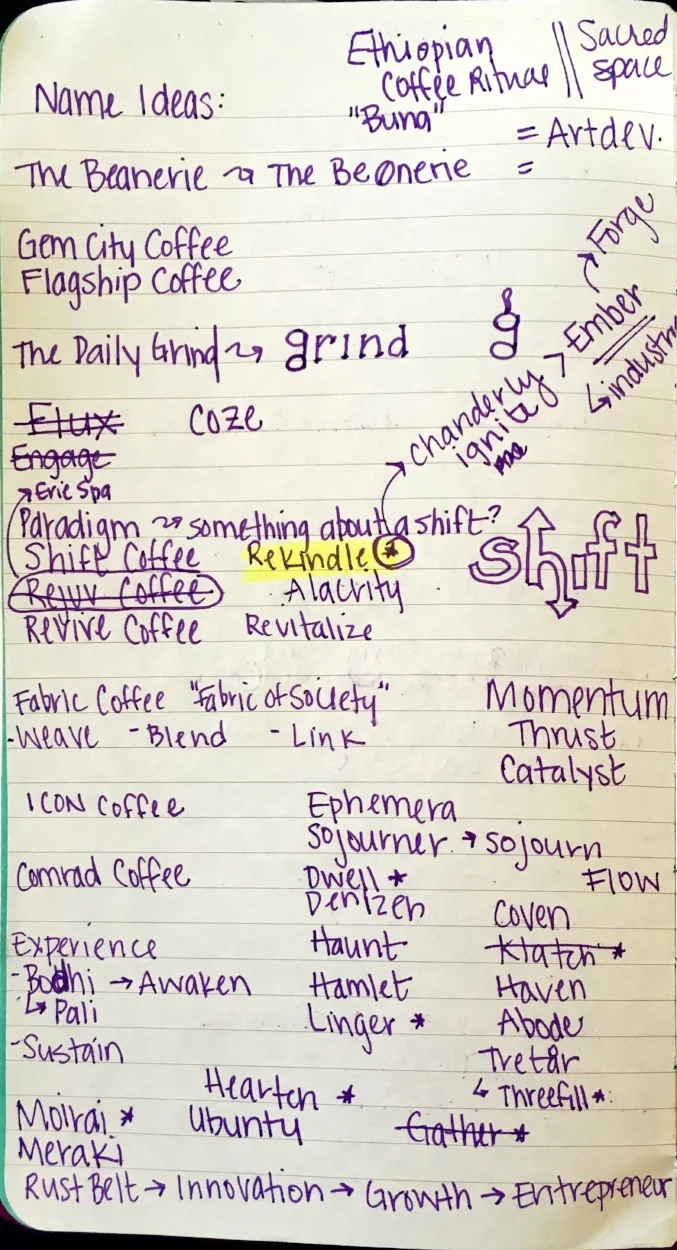 Ethiopian
Coffee Ritual
"Buna"
Sacred
space
Name Ideas:
= Artdev.
The Beanerie → The Beonerie =
Gem City Coffee
Flagship Coffee
Forge
Ember
industr
The Daily Grind → grind
g
chanderly
ignite
Flux
Coze
Engage
→ Eric Spa
Paradigm → something about a shift?
Shift Coffee
Rekindle *
shift
Rejuv Coffee
Alacrity
Revive Coffee
Revitalize
Fabric Coffee "fabric of society"
- Weave - Blend - Link
Momentum
Thrust
Catalyst
ICON Coffee
Ephemera
Sojourner → sojourn
Comrad Coffee
Dwell *
Flow
Denizen
Coven
Experience
Haunt
Klatch *
- Bodhi → Awaken
Hamlet
Haven
↳ Pali
Linger *
Abode
- Sustain
Tretår
Heartch *
↳ Threefill *
Moirai *
Ubunty
Gather *
Meraki
Rust Belt → Innovation → Growth → Entrepreneur